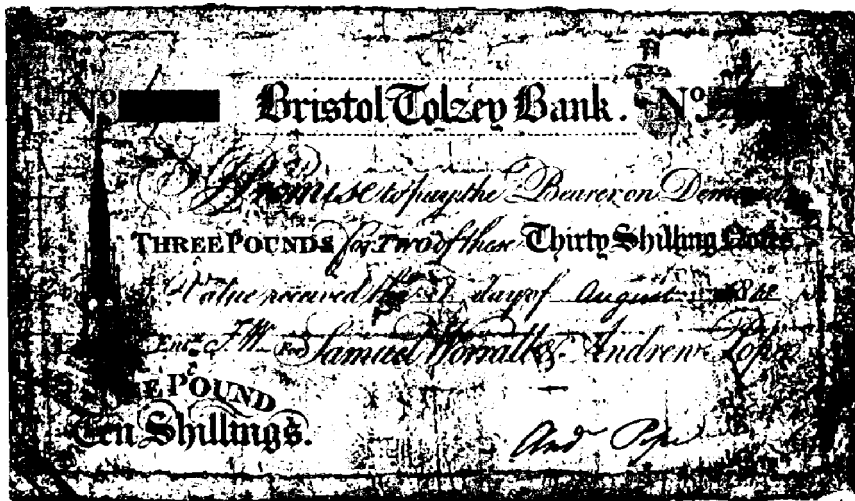 No Bristol Tolzey Bank. No
I Promise to pay the Bearer on Demand
THREE POUNDS for Two of these Thirty Shilling Notes.
Value received the day of August
Entd. J.W. For Samuel Worrall & Andrew Pope
ONE POUND
Ten Shillings.
And Pope